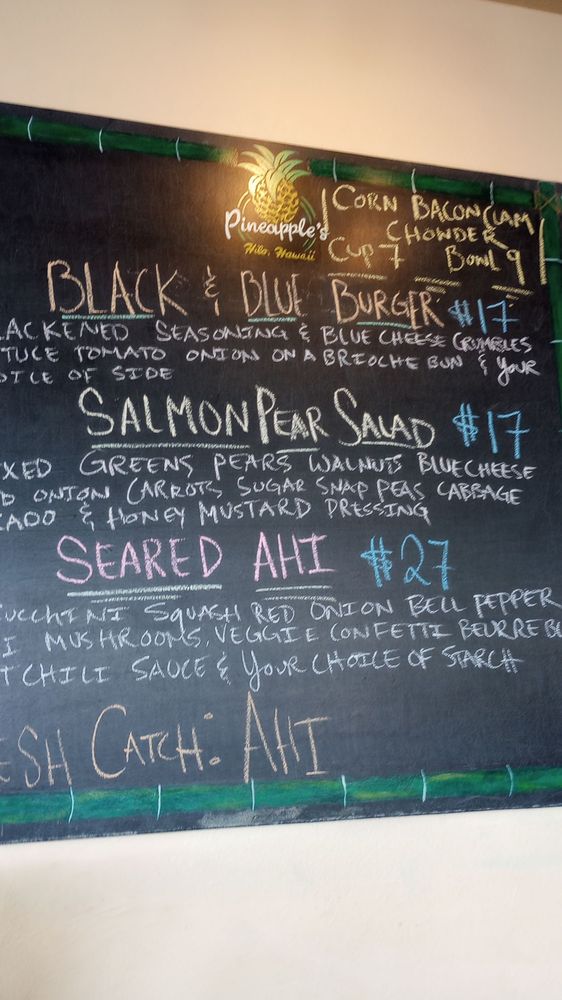 Pineapple's
Hilo, Hawaii
CORN BACON CLAM
CHOWDER
CUP 7 BOWL 9
BLACK & BLUE BURGER $17
LACKENED SEASONING & BLUE CHEESE CRUMBLES
TTUCE TOMATO ONION ON A BRIOCHE BUN & YOUR
OICE OF SIDE
SALMON PEAR SALAD $17
IXED GREENS PEARS WALNUTS BLUECHEESE
D ONION CARROTS SUGAR SNAP PEAS CABBAGE
CADO & HONEY MUSTARD DRESSING
SEARED AHI $27
ZUCCHINI SQUASH RED ONION BELL PEPPER
I MUSHROOMS, VEGGIE CONFETTI BEURRE BL
T CHILI SAUCE & YOUR CHOICE OF STARCH
ESH CATCH: AHI